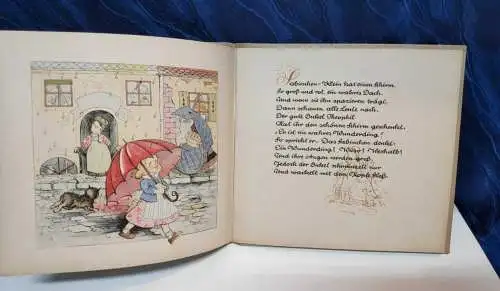 Sabinchen-Klein hat einen Schirm
So groß und rot, ein wahres Dach.
Und wenn sie ihn spazieren trägt,
Dann schauen alle Leute nach.
Der gute Onkel Theophil
Hat ihr den schönen Schirm geschenkt.
„Es ist ein wahres Wunderding!“
So spricht er. Das Sabinchen denkt:
Ein Wunderding? Wieso? Weshalb?
Und ihre Augen werden groß.
Jedoch der Onkel schmunzelt nur
Und wackelt mit dem Kopfe bloß.